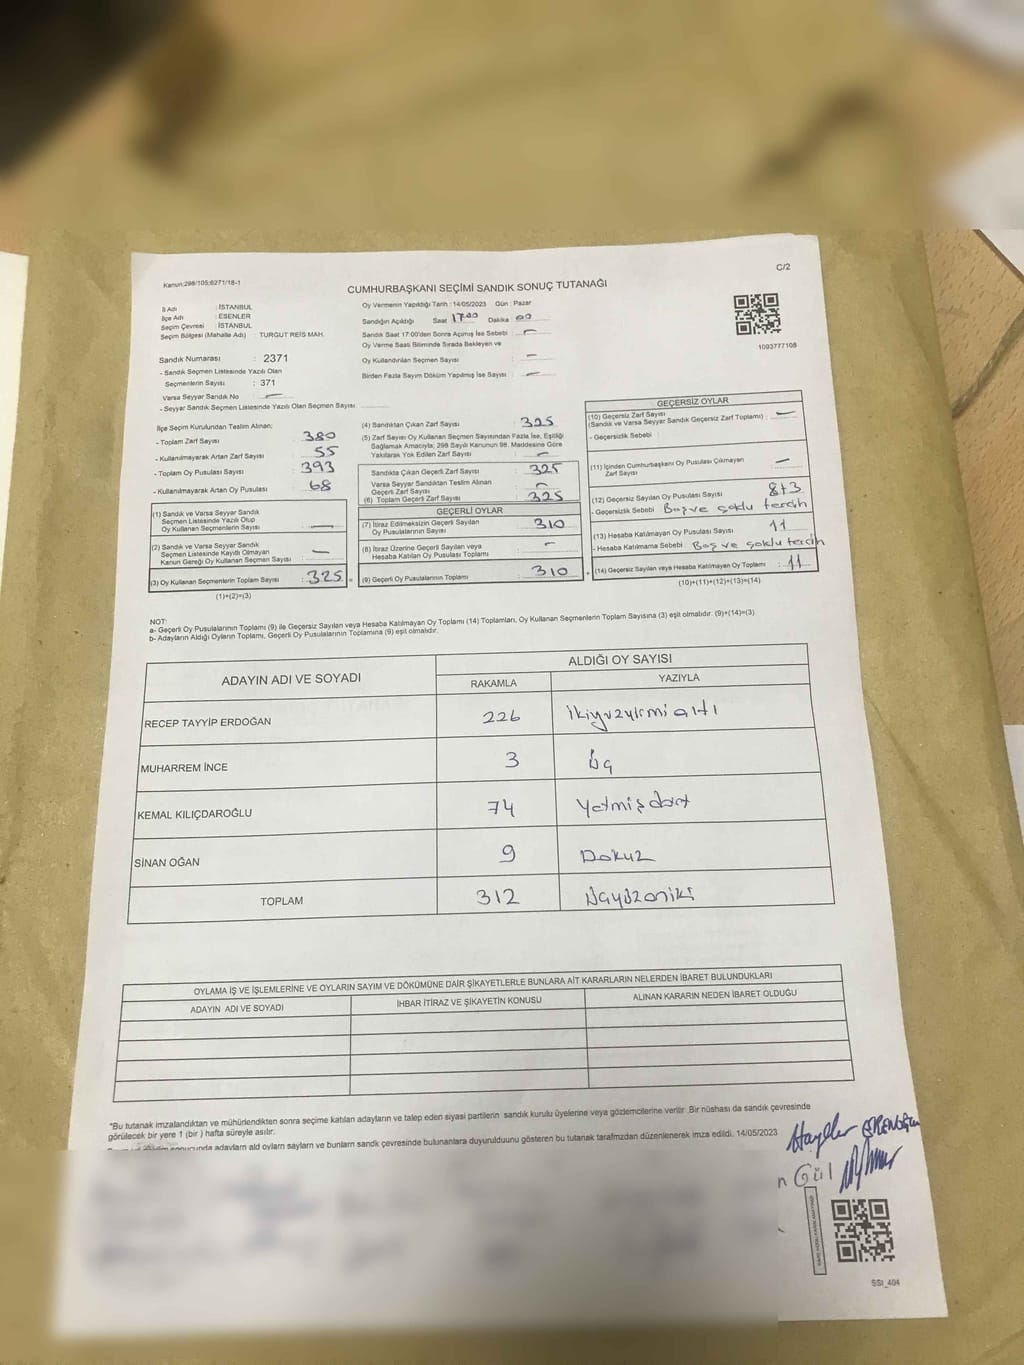 Kanun:298/105;6271/18-1
C/2
CUMHURBAŞKANI SEÇİMİ SANDIK SONUÇ TUTANAĞI
İl Adı : İSTANBUL
İlçe Adı : ESENLER
Seçim Çevresi : İSTANBUL
Seçim Bölgesi (Mahalle Adı) TURGUT REİS MAH.
Sandık Numarası : 2371
- Sandık Seçmen Listesinde Yazılı Olan
Seçmenlerin Sayısı : 371
Varsa Seyyar Sandık No : —
- Seyyar Sandık Seçmen Listesinde Yazılı Olan Seçmen Sayısı
Oy Vermenin Yapıldığı Tarih : 14/05/2023 Gün : Pazar
Sandığın Açıldığı Saat 17.00 Dakika 00
Sandık Saat 17:00'den Sonra Açılmış İse Sebebi : —
Oy Verme Saati Bitiminde Sırada Bekleyen ve
Oy Kullandırılan Seçmen Sayısı : —
Birden Fazla Sayım Döküm Yapılmış İse Sayısı : —
1093777108
İlçe Seçim Kurulundan Teslim Alınan;
- Toplam Zarf Sayısı : 380
- Kullanılmayarak Artan Zarf Sayısı : 55
- Toplam Oy Pusulası Sayısı : 393
- Kullanılmayarak Artan Oy Pusulası : 68
(1) Sandık ve Varsa Seyyar Sandık
Seçmen Listesinde Yazılı Olup
Oy Kullanan Seçmenlerin Sayısı : —
(2) Sandık ve Varsa Seyyar Sandık
Seçmen Listesinde Kayıtlı Olmayan
Kanun Gereği Oy Kullanan Seçmen Sayısı : —
(3) Oy Kullanan Seçmenlerin Toplam Sayısı : 325 =
(1)+(2)=(3)
(4) Sandıktan Çıkan Zarf Sayısı : 325
(5) Zarf Sayısı Oy Kullanan Seçmen Sayısından Fazla İse, Eşitliği
Sağlamak Amacıyla; 298 Sayılı Kanunun 98. Maddesine Göre
Yakılarak Yok Edilen Zarf Sayısı : —
Sandıkta Çıkan Geçerli Zarf Sayısı : 325
Varsa Seyyar Sandıktan Teslim Alınan
Geçerli Zarf Sayısı : —
(6) Toplam Geçerli Zarf Sayısı : 325
GEÇERLİ OYLAR
(7) İtiraz Edilmeksizin Geçerli Sayılan
Oy Pusulalarının Sayısı : 310
(8) İtiraz Üzerine Geçerli Sayılan veya
Hesaba Katılan Oy Pusulası Toplamı : —
(9) Geçerli Oy Pusulalarının Toplamı : 310 +
GEÇERSİZ OYLAR
(10) Geçersiz Zarf Sayısı
(Sandık ve Varsa Seyyar Sandık Geçersiz Zarf Toplamı) : —
- Geçersizlik Sebebi :
(11) İçinden Cumhurbaşkanı Oy Pusulası Çıkmayan
Zarf Sayısı : —
(12) Geçersiz Sayılan Oy Pusulası Sayısı : 8+3
- Geçersizlik Sebebi Boş ve çoklu tercih
(13) Hesaba Katılmayan Oy Pusulası Sayısı : 11
- Hesaba Katılmama Sebebi : Boş ve çoklu tercih
(14) Geçersiz Sayılan veya Hesaba Katılmayan Oy Toplamı : 11
(10)+(11)+(12)+(13)=(14)
NOT:
a- Geçerli Oy Pusulalarının Toplamı (9) ile Geçersiz Sayılan veya Hesaba Katılmayan Oy Toplamı (14) Toplamları, Oy Kullanan Seçmenlerin Toplam Sayısına (3) eşit olmalıdır. (9)+(14)=(3)
b- Adayların Aldığı Oyların Toplamı, Geçerli Oy Pusulalarının Toplamına (9) eşit olmalıdır.
ADAYIN ADI VE SOYADI ALDIĞI OY SAYISI
RAKAMLA YAZIYLA
RECEP TAYYİP ERDOĞAN 226 ikiyüzyirmialtı
MUHARREM İNCE 3 üç
KEMAL KILIÇDAROĞLU 74 Yetmişdört
SİNAN OĞAN 9 Dokuz
TOPLAM 312 üçyüzoniki
OYLAMA İŞ VE İŞLEMLERİNE VE OYLARIN SAYIM VE DÖKÜMÜNE DAİR ŞİKAYETLERLE BUNLARA AİT KARARLARIN NELERDEN İBARET BULUNDUKLARI
ADAYIN ADI VE SOYADI İHBAR İTİRAZ VE ŞİKAYETİN KONUSU ALINAN KARARIN NEDEN İBARET OLDUĞU
"Bu tutanak imzalandıktan ve mühürlendikten sonra seçime katılan adayların ve talep eden siyasi partilerin sandık kurulu üyelerine veya gözlemcilerine verilir .Bir nüshası da sandık çevresinde
görülecek bir yere 1 (bir ) hafta süreyle asılır.
sonucunda adayların ald oyların sayların ve bunların sandk çevresinde bulunanlara duyurulduunu gösteren bu tutanak tarafmzdan düzenlenerek imza edildi. 14/05/2023
n Gül
SSI_404